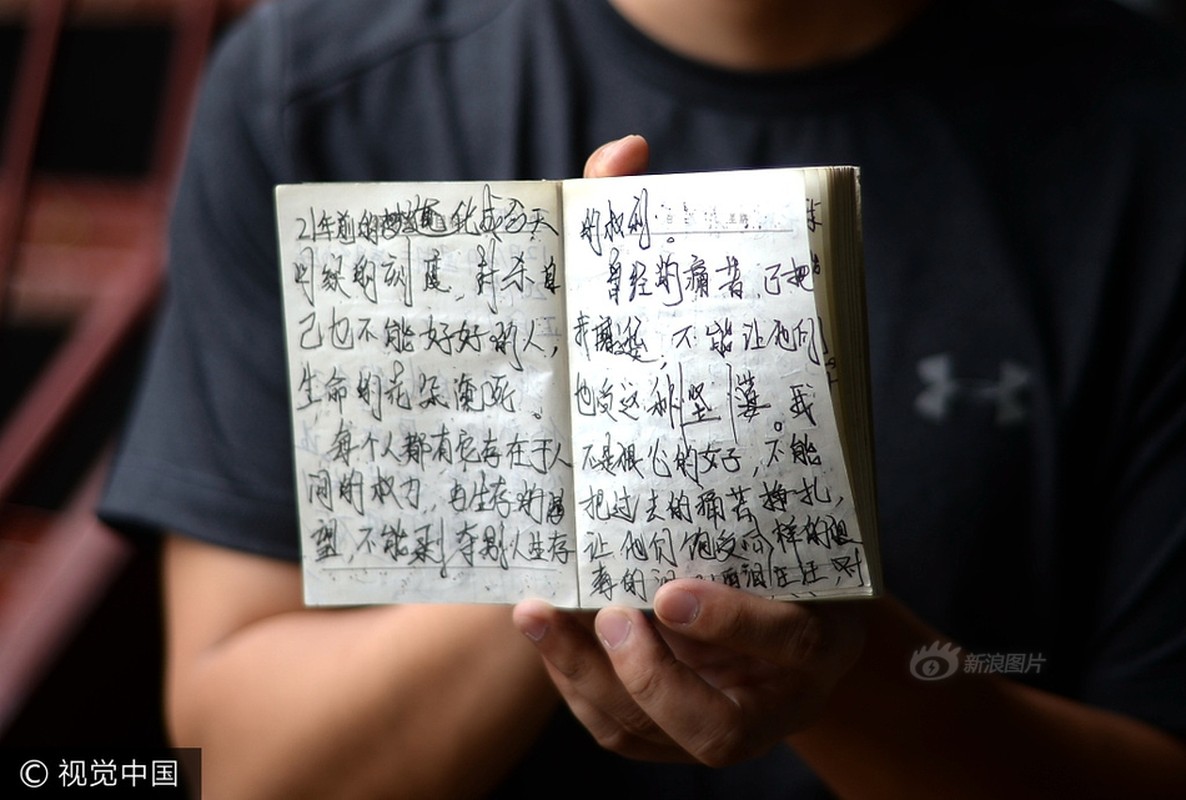 21年前的梦魇化成今天
明缓的刻度,封杀自
己也不能好好的人,
生命的花朵凋死。
每个人都有它存在于人
间的权力,与生存的渴
望,不能剥夺别人生存
的权利。
曾经的痛苦,已把
我磨,不能让他们
也受这种。我
不是狠心的女子,不能
把过去的痛苦挣扎,
让他们饱受同样的
的泪汪汪,对
新浪图片
© 视觉中国